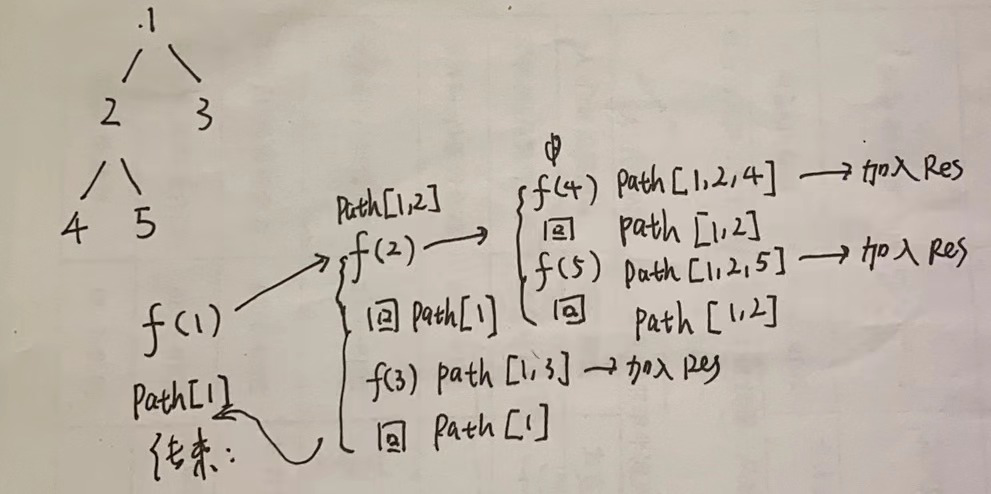 1
2 3
4 5
f(1)
Path[1]
Path[1,2]
f(2)
回 Path[1]
f(3) path [1,3] → 加入 Res
回 Path[1]
f(4) Path[1,2,4] → 加入 Res
回 path [1,2]
f(5) Path[1,2,5] → 加入 Res
回 path [1,2]